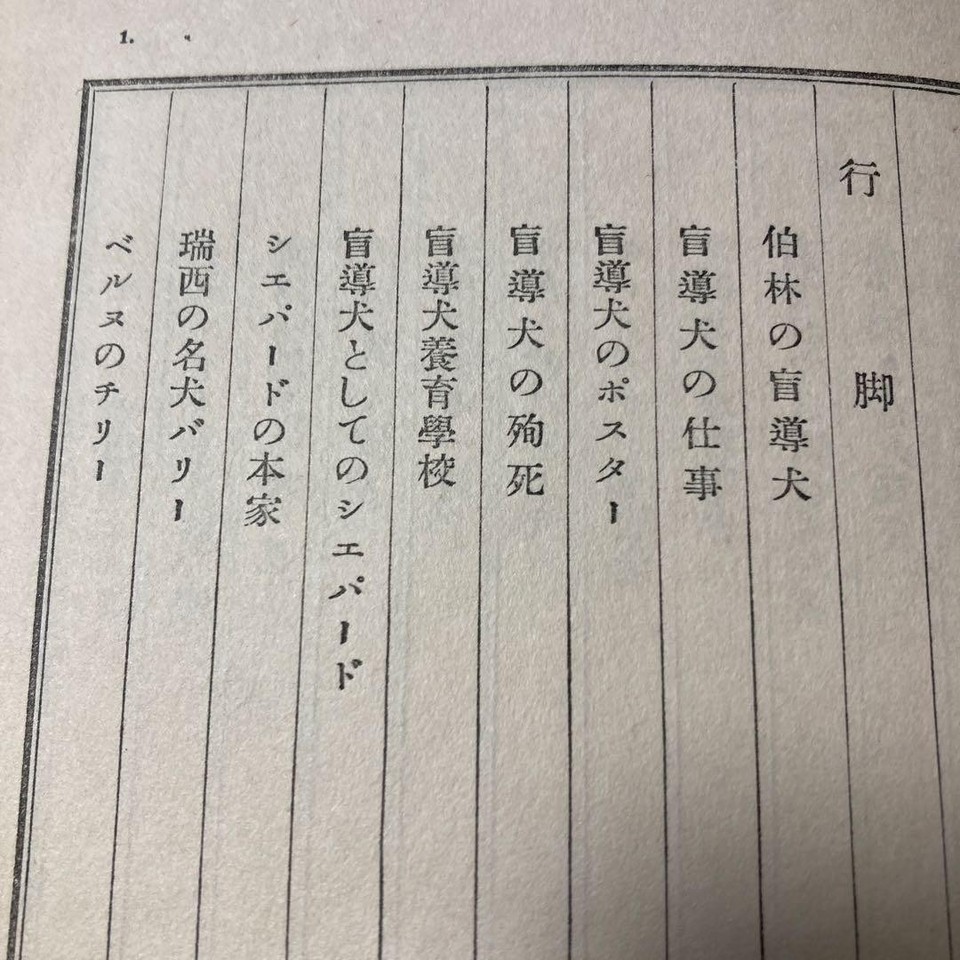 1.
行脚
伯林の盲導犬
盲導犬の仕事
盲導犬のポスター
盲導犬の殉死
盲導犬養育學校
盲導犬としてのシエパード
シエパードの本家
瑞西の名犬バリー
ベルヌのチリー